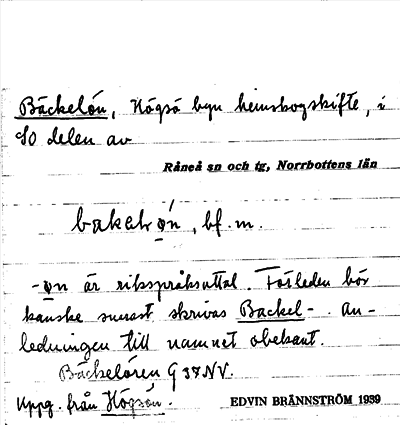 Bäckelön, Högsö byn hemskogskifte, i
SO delen av
Råneå sn och tg, Norrbottens län
bakelrọ́n, bf. m.
-ọn är riksspråksuttal. Förleden bör
kanske snarast skrivas Backel-. An-
ledningen till namnet obekant.
Bäckelören G 37 NV.
Uppg. från Högsön.
EDVIN BRÄNNSTRÖM 1939